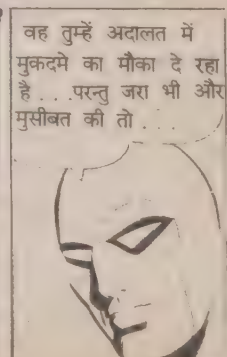 वह तुम्हें अदालत में
मुकदमे का मौका दे रहा
है . . . परन्तु जरा भी और
मुसीबत की तो . . .